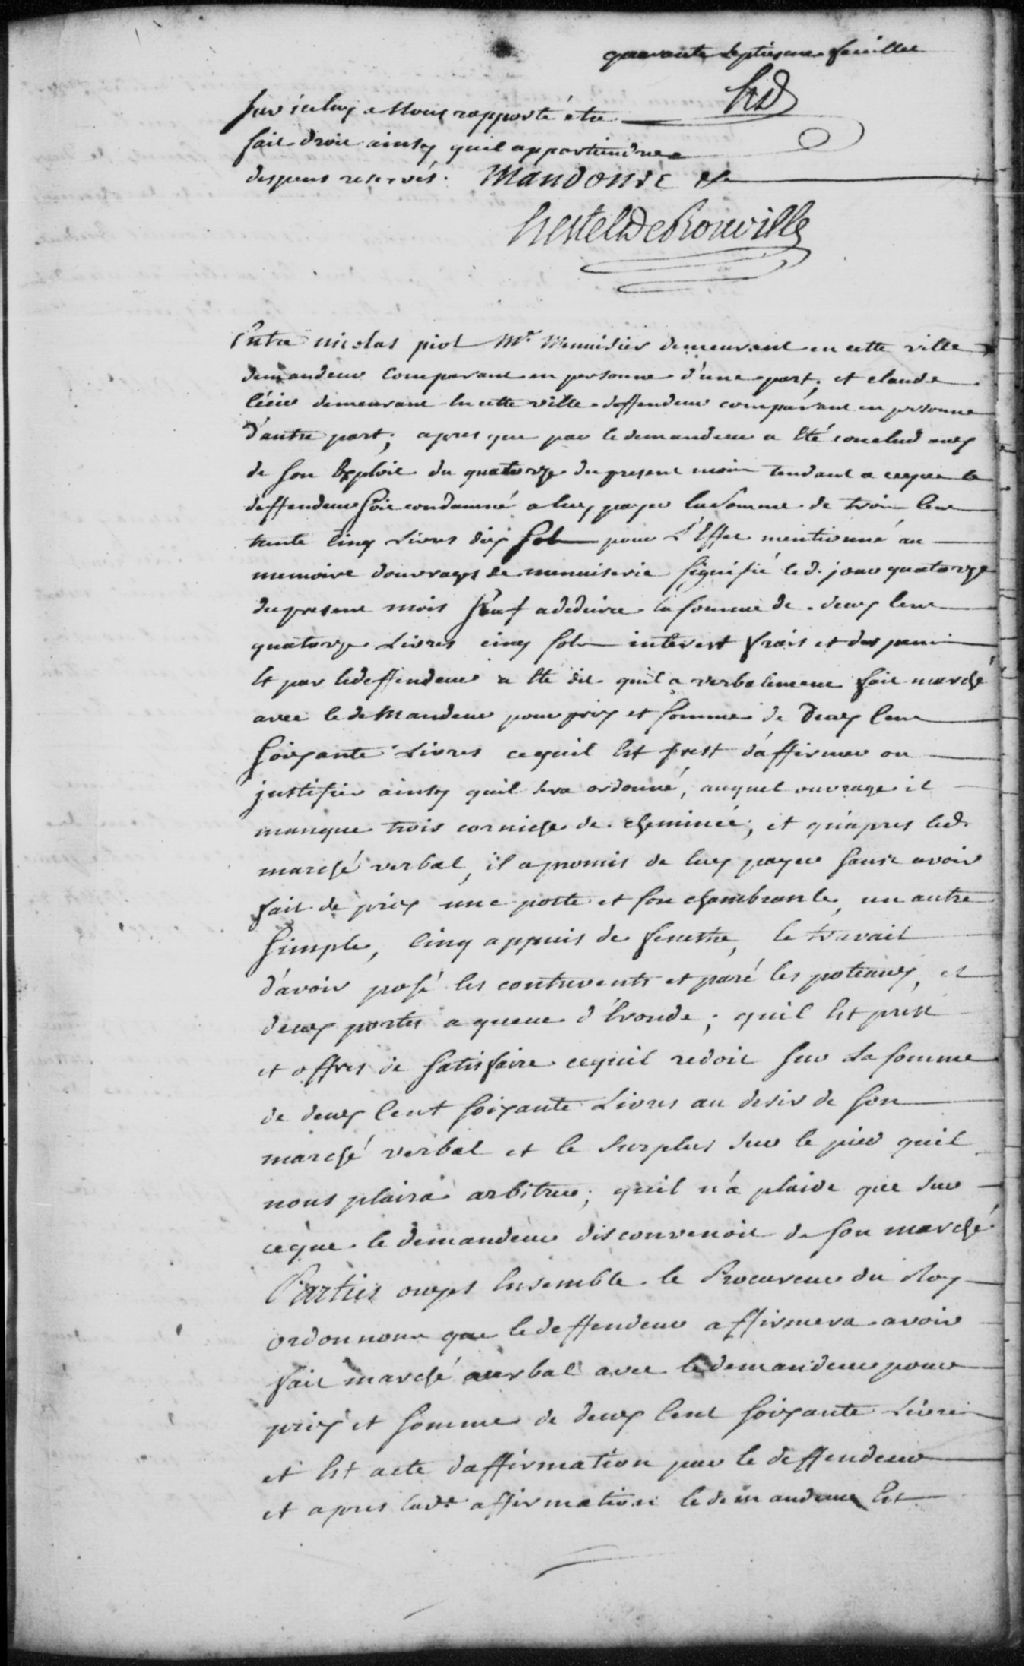 quarante septiesme feuillet
hd
sur iceluy a Nous rapporté etre
fait droit ainsy quil appartiendra
despens reservés. Mandons &c
hertel De Rouville
Entre nicolas piot Mr Menuisier demeurant en cette ville
demandeur comparant en personne d'une part, et claude
demeurant en cette ville deffendeur comparant en personne
d'autre part; apres que par le demandeur a Eté conclud aux fins
de son Exploit du quatorze du present mois tendant a ceque le
deffendeur soit condamné a luy payer la somme de trois Cent
trente Cinq Livres dix sols pour L'Effet mentionné au
memoire d'ouvrages de menuiserie signifié led. jour quatorze
du present mois sauf a deduire la somme de deux Cent
quatorze Livres cinq sols interest frais et despens
Et par ledeffendeur a Eté dit quil a verbalement fait marché
avec le deMandeur pour prix et somme de Deux Cent
soixante Livres cequil Est prest d'affirmer ou
justifier ainsy quil sera ordonné, auquel ouvrage il
manque trois corniche de cheminée; et qu'apres led.
marché verbal, il a promis de luy payer sans avoir
fait de prix une porte et son chambranle, un autre
simple, Cinq appuis de fenestre, le travail
d'avoir posé les contrevents et paré les poteaux, et
deux portes a queue d'Eronde; quil Est prest
et offres de satisfaire cequil redoit sur La somme
de deux Cent soixante Livres au desir de son
marché verbal et le surplus sur le pied quil
nous plaira arbitrer; quil n'a plaidé que sur
ceque le demandeur disconvenoit de son marché
Parties ouyes Ensemble le Procureur du Roy
ordonnons que le deffendeur affirmera avoir
fait marché verbal avec le demandeur pour
prix et somme de deux Cent soixante Livres
et Est acte d'affirmation par le deffendeur
et apres lade affirmation le demandeur Est